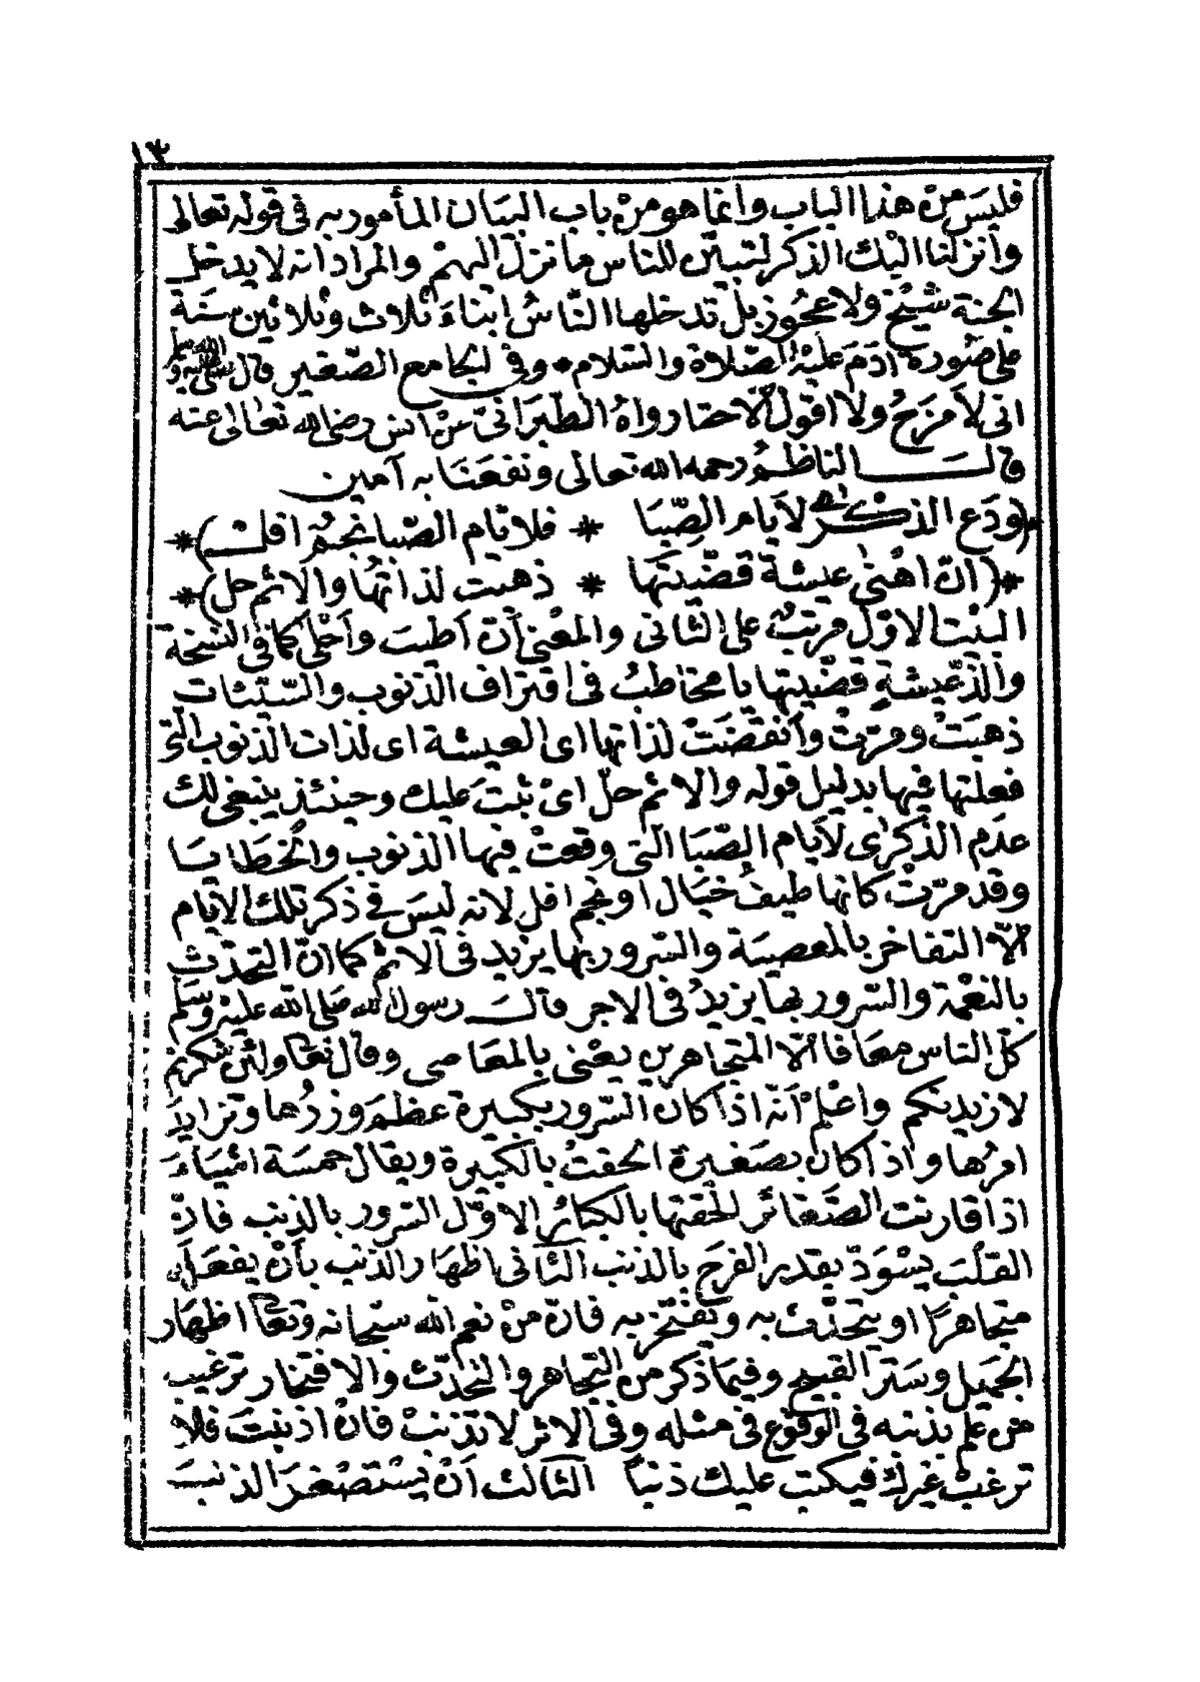 ١٣
فليسَ منْ هذا الباب وانما هو منْ باب البيَان المأمور به فى قوله تعالى
وانزلنا اليْك الذكر لتبيّن للناس ما نزلَ اليهمْ والمراد انه لا يدخل
الجنة شيْخ ولا عجُوز بل تدخلها النّاسُ ابناءَ ثلاث وثلاثين سنَة
على صُورة ادَمَ عليْه الصّلاة والسّلام * وفى الجامع الصّغير قال صلى الله عليه وسلم
انى لأمزحُ ولا اقول الّا حقا رواهُ الطبرَانىّ عنْ انس رضى الله تعالى عنه
قالــَـ الناظمُ رحمه الله تعالى ونفعَنا به آمين
*(ودَع الذكْرى لأيام الصِّبَا * فلاَيام الصّبا نجمٌ افلْ)*
*(انّ اهْنى عيشة قضّيتَها * ذهبَت لذاتُها والاثم حل)*
البيْت الاوّل مرتبٌ على الثّانى والمعْنى أنّ أطيَب وأحْلى كما فى النسْخة
والذّ عيشةٍ قضّيتها يا مخاطبُ فى اقتراف الذنوب والسّيّئات
ذهبَتْ ومرّتْ وانقضَتْ لذاتها اى العيشة اى لذات الذنوب الّتى
فعلتها فيها بدليل قوله والاثم حلّ اىْ ثبتَ عليك وحينئذ ينبغى لك
عدَم الذكْرى لأيام الصّبَا الّتى وقعتْ فيها الذنوب والخَطايَا
وقد مرّتْ كانها طيفُ خيَال او نجم افل لانه ليسَ فى ذكر تلك الايام
الّا التفاخر بالمعصيَة والسّرور بها يزيد فى الاثمْ كما انّ التحدّث
بالنعْمة والسّرور بها يزيدُ فى الاجر قالَــ رسول الله صَلى الله عليْه وسَلم
كلّ الناس معَافا الّا المتجاهرين يعْنى بالمعَاصى وقال تعالى ولئنْ شكرتمْ
لازيدنكم واعْلمْ أنّه اذا كان السّرور بكبيرة عظمَ وزرُها وتزايدَ
امرُها واذا كان بصَغيرة الحقتْ بالكبيرة ويقال خمسَة اشيَاءَ
اذا قارنت الصّغائر الحقتها بالكبَائر الاوّل السّرور بالذنب فانّ
القلْبَ يسْوَدّ بقدر الفرَح بالذنب الثّانى اظهَار الذنب بأنْ يفعَله
متجاهرًا او يتحدّث به ويفتخر به فانّ منْ نعم الله سبْحانه وتعالى اظهَار
الجمَيل وسَترَ القبيح وفيما ذكر من التّجاهر والتحدّث والافتخار ترغيب
من علمَ بذنبه فى الوقوع فى مثله وفى الاثر لا تذنبْ فانْ اذنبتَ فلا
ترغبْ غيركْ فيكتب عليك ذنبًا الثّالث أنْ يسْتصْغرَ الذنبَ